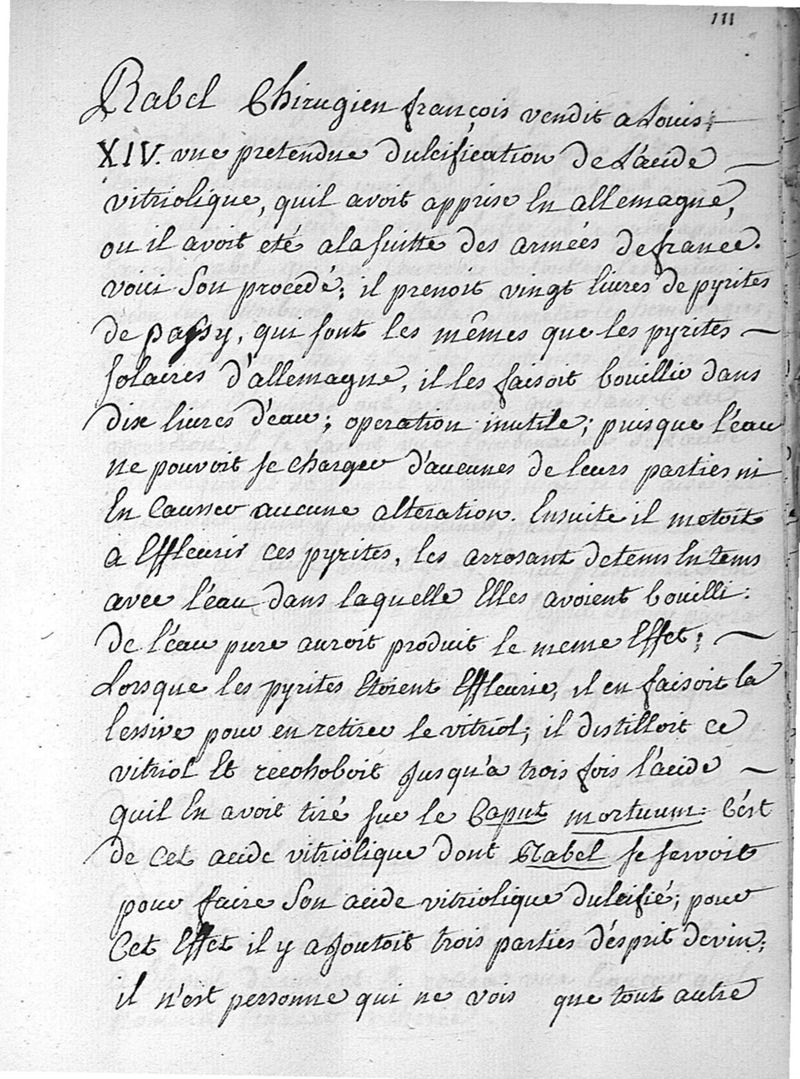 111
Rabel Chirugien françois vendit a Louis
XIV. une pretendue dulcification de L'acide
vitriolique, quil avoit apprise En allemagne,
ou il avoit eté a la suitte des armées de france.
voici Son procedé; il prenoit vingt livres de pyrites
de passy, qui sont les mêmes que les pyrites
solaires d'allemagne, il les faisoit bouillir dans
dix livres d'eau; operation inutile; puisque l'eau
ne pouvoit se charger d'aucunes de leurs parties ni
En causer aucune alteration. Ensuite il metoit
a Effleurir ces pyrites, les arrosant detems En tems
avec l'eau dans laquelle Elles avoient bouilli:
de l'éau pure auroit produit le meme Effet;
Lorsque les pyrites Etoient Effleurie, il en faisoit la
lessive pour en retirer le vitriol; il distilloit ce
vitriol Et recohoboit jusqu'a trois fois l'acide
quil En avoit tiré sur le Caput mortuum: C'ést
de Cet acide vitriolique dont Rabel se servoit
pour faire Son acide vitriolique dulcifié; pour
Cet Effet il y ajoutoit trois parties d'ésprit de vin;
il n'est personne qui ne vois que tout autre